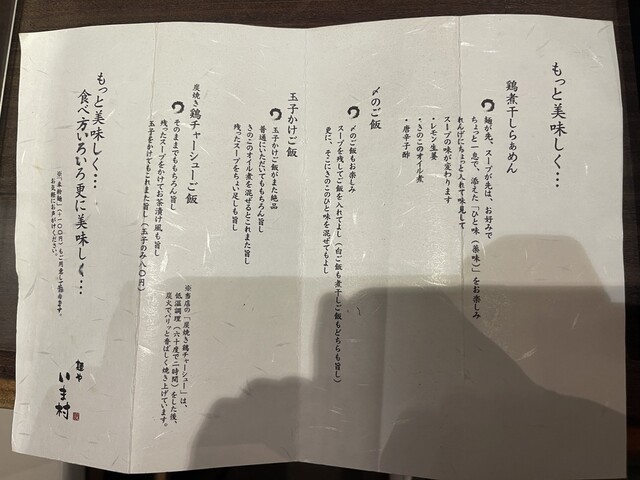 もっと美味しく…
鶏煮干しらぁめん
麺が先、スープが先は、お好みで
ちょっと一息で、添えた「ひと味(薬味)」をお楽しみ
れんげにちょっと入れて味見して
スープの味が変わります
・レモン生姜
・きのこのオイル煮
・唐辛子酢
〆のご飯
〆のご飯もお楽しみ
スープを残してご飯を入れてよし(白ご飯も煮干しご飯もどちらも旨し)
更に、そこにきのこのひと味を混ぜてもよし
玉子かけご飯
玉子かけご飯がまた絶品
普通にいただいてももちろん旨し
きのこのオイル煮を混ぜるとこれまた旨し
残ったスープをちょい足しも旨し
炭焼き鶏チャーシューご飯
そのままでももちろん旨し
残ったスープをかけてお茶漬け風も旨し
玉子をかけてもこれまた旨し(玉子のみ八〇円)
※当店の「炭焼き鶏チャーシュー」は、
低温調理(六十度で二時間)をした後、
炭火でパリッと香ばしく焼き上げています。
もっと美味しく…
食べ方いろいろ更に美味しく…
お気軽にお声がけください。
麺や
いま村